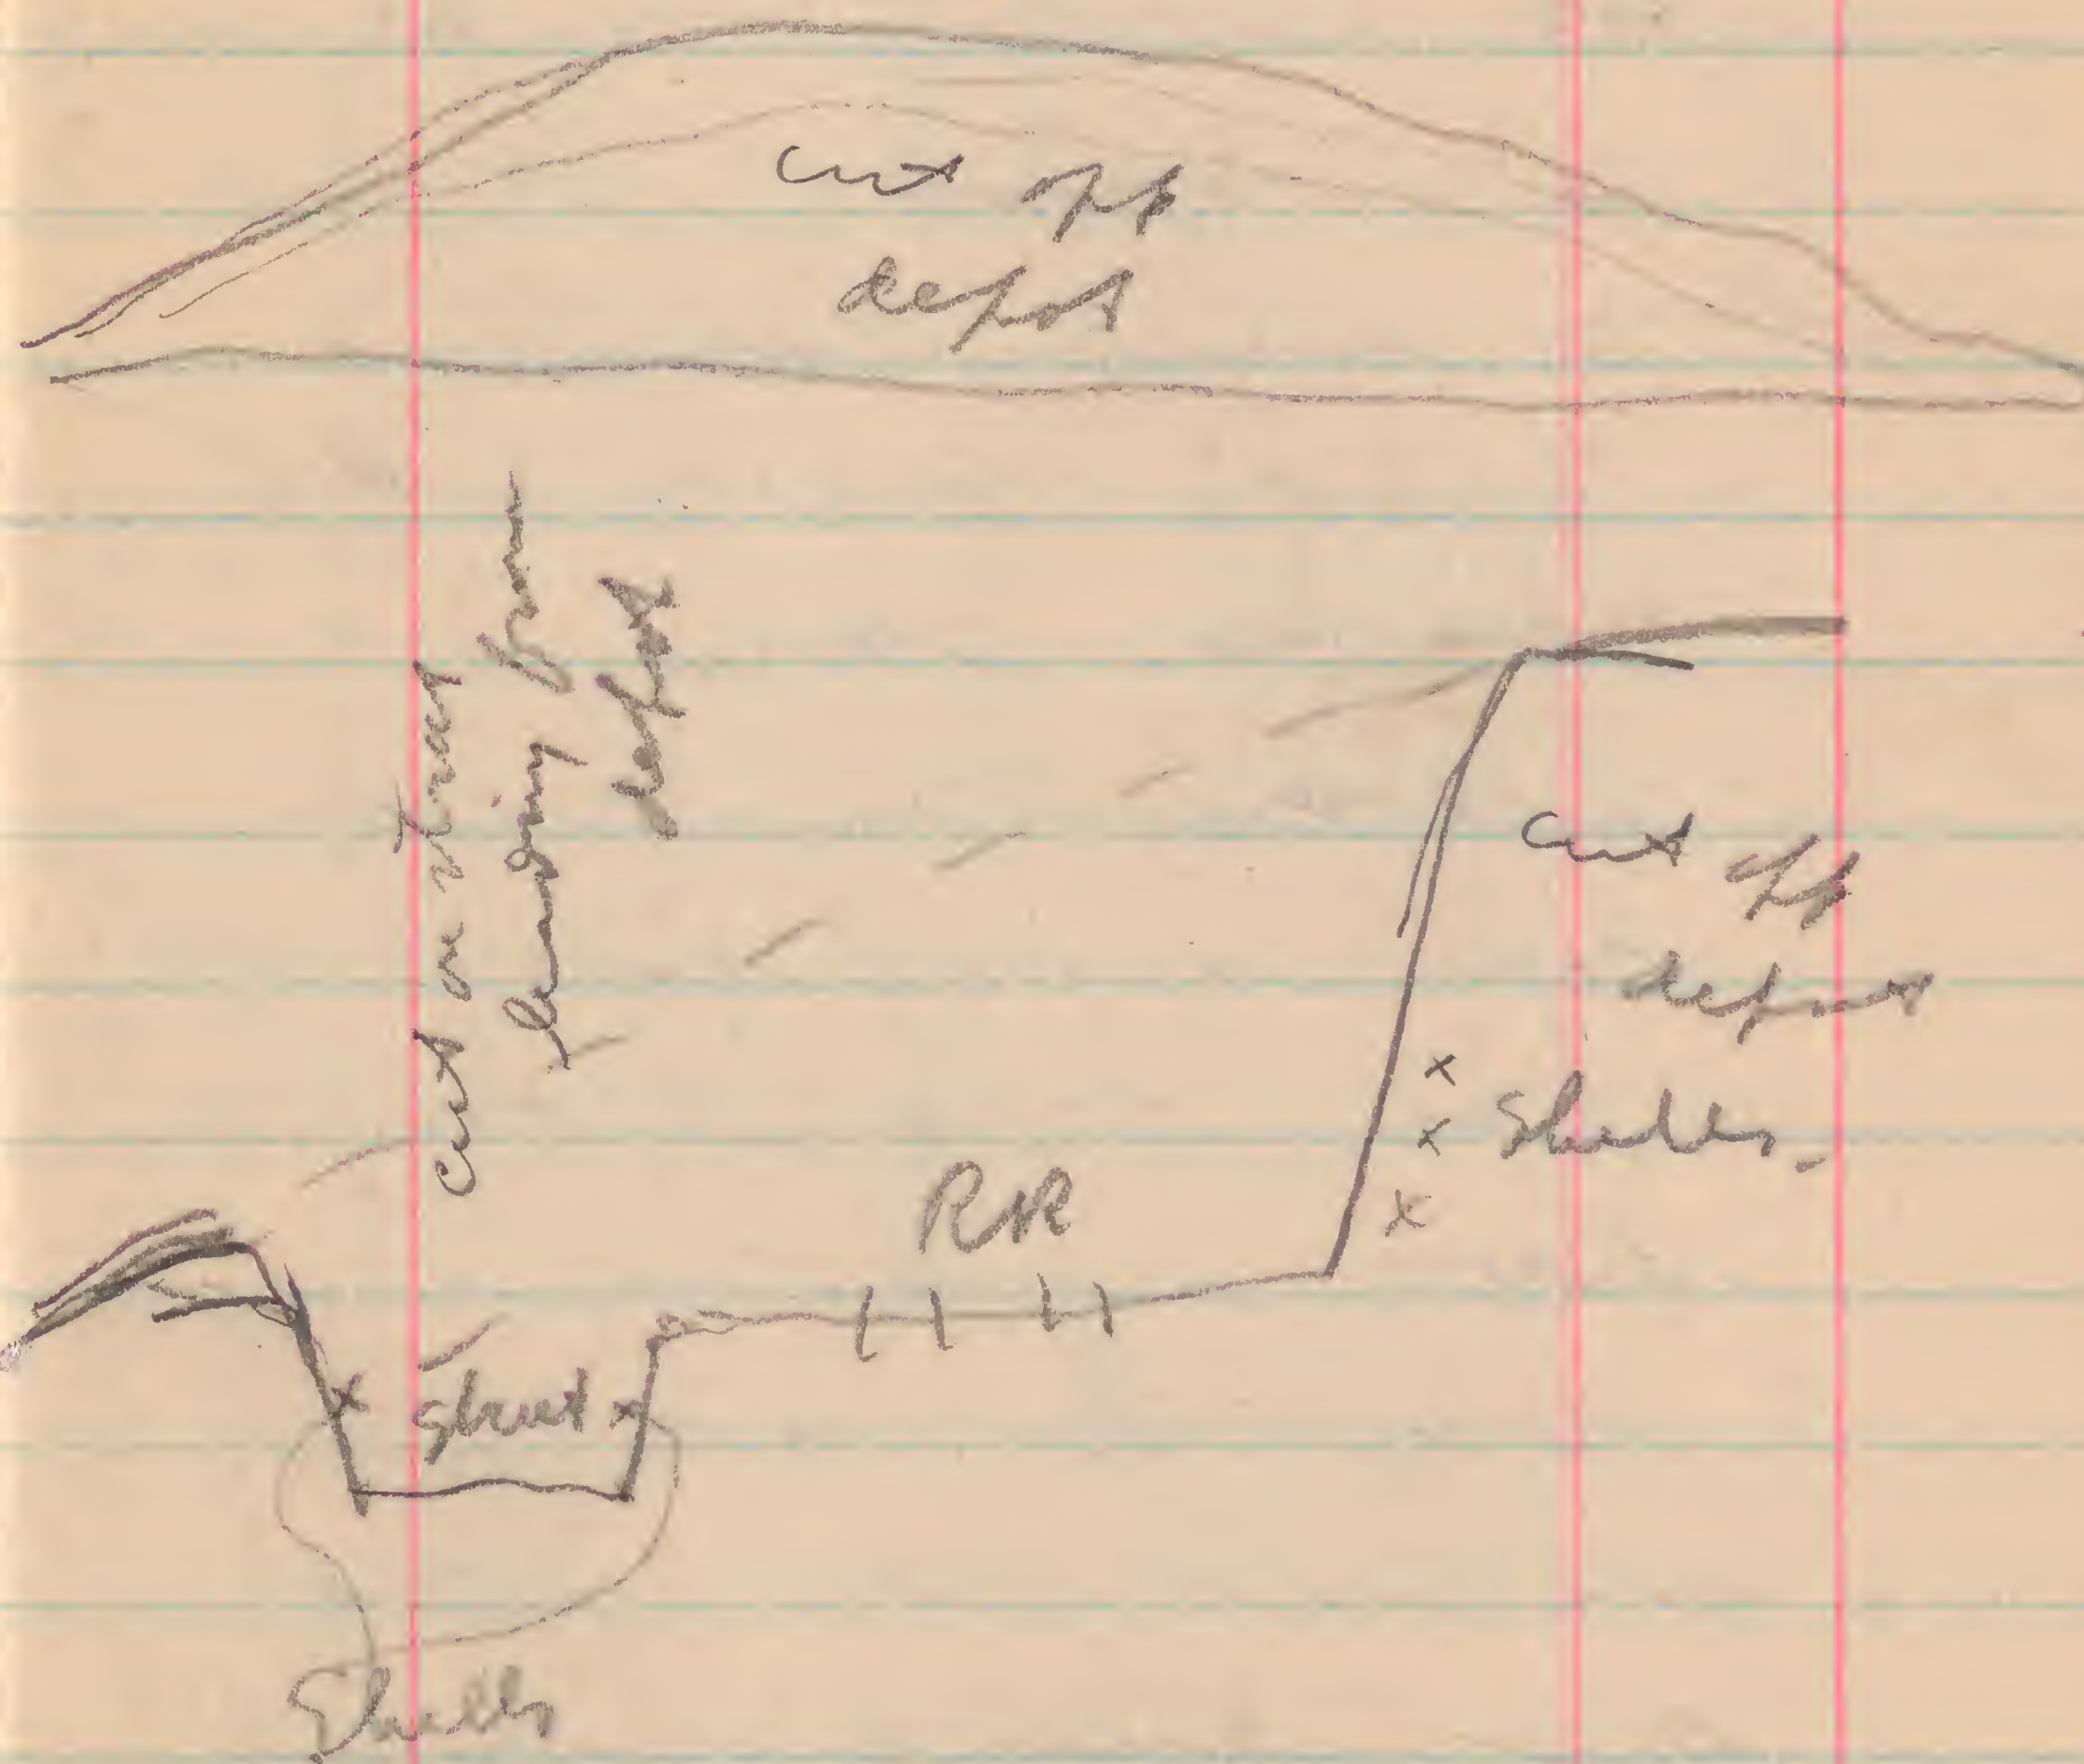 cut opp
depot
cut on street
leading from
depot
cut opp
depot
x
x Shells.
x
RR
x street x
Shells